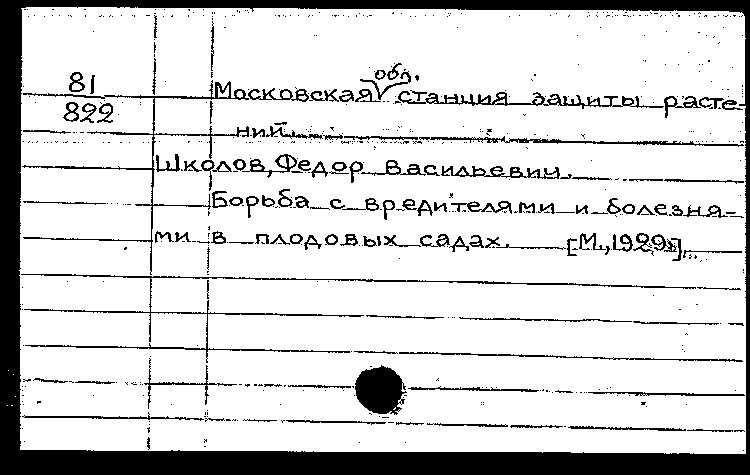 81
822
обл.
Московская станция защиты расте-
ний.
Школов, Федор Васильевич.
Борьба с вредителями и болезня-
ми в плодовых садах. [М., 1929]